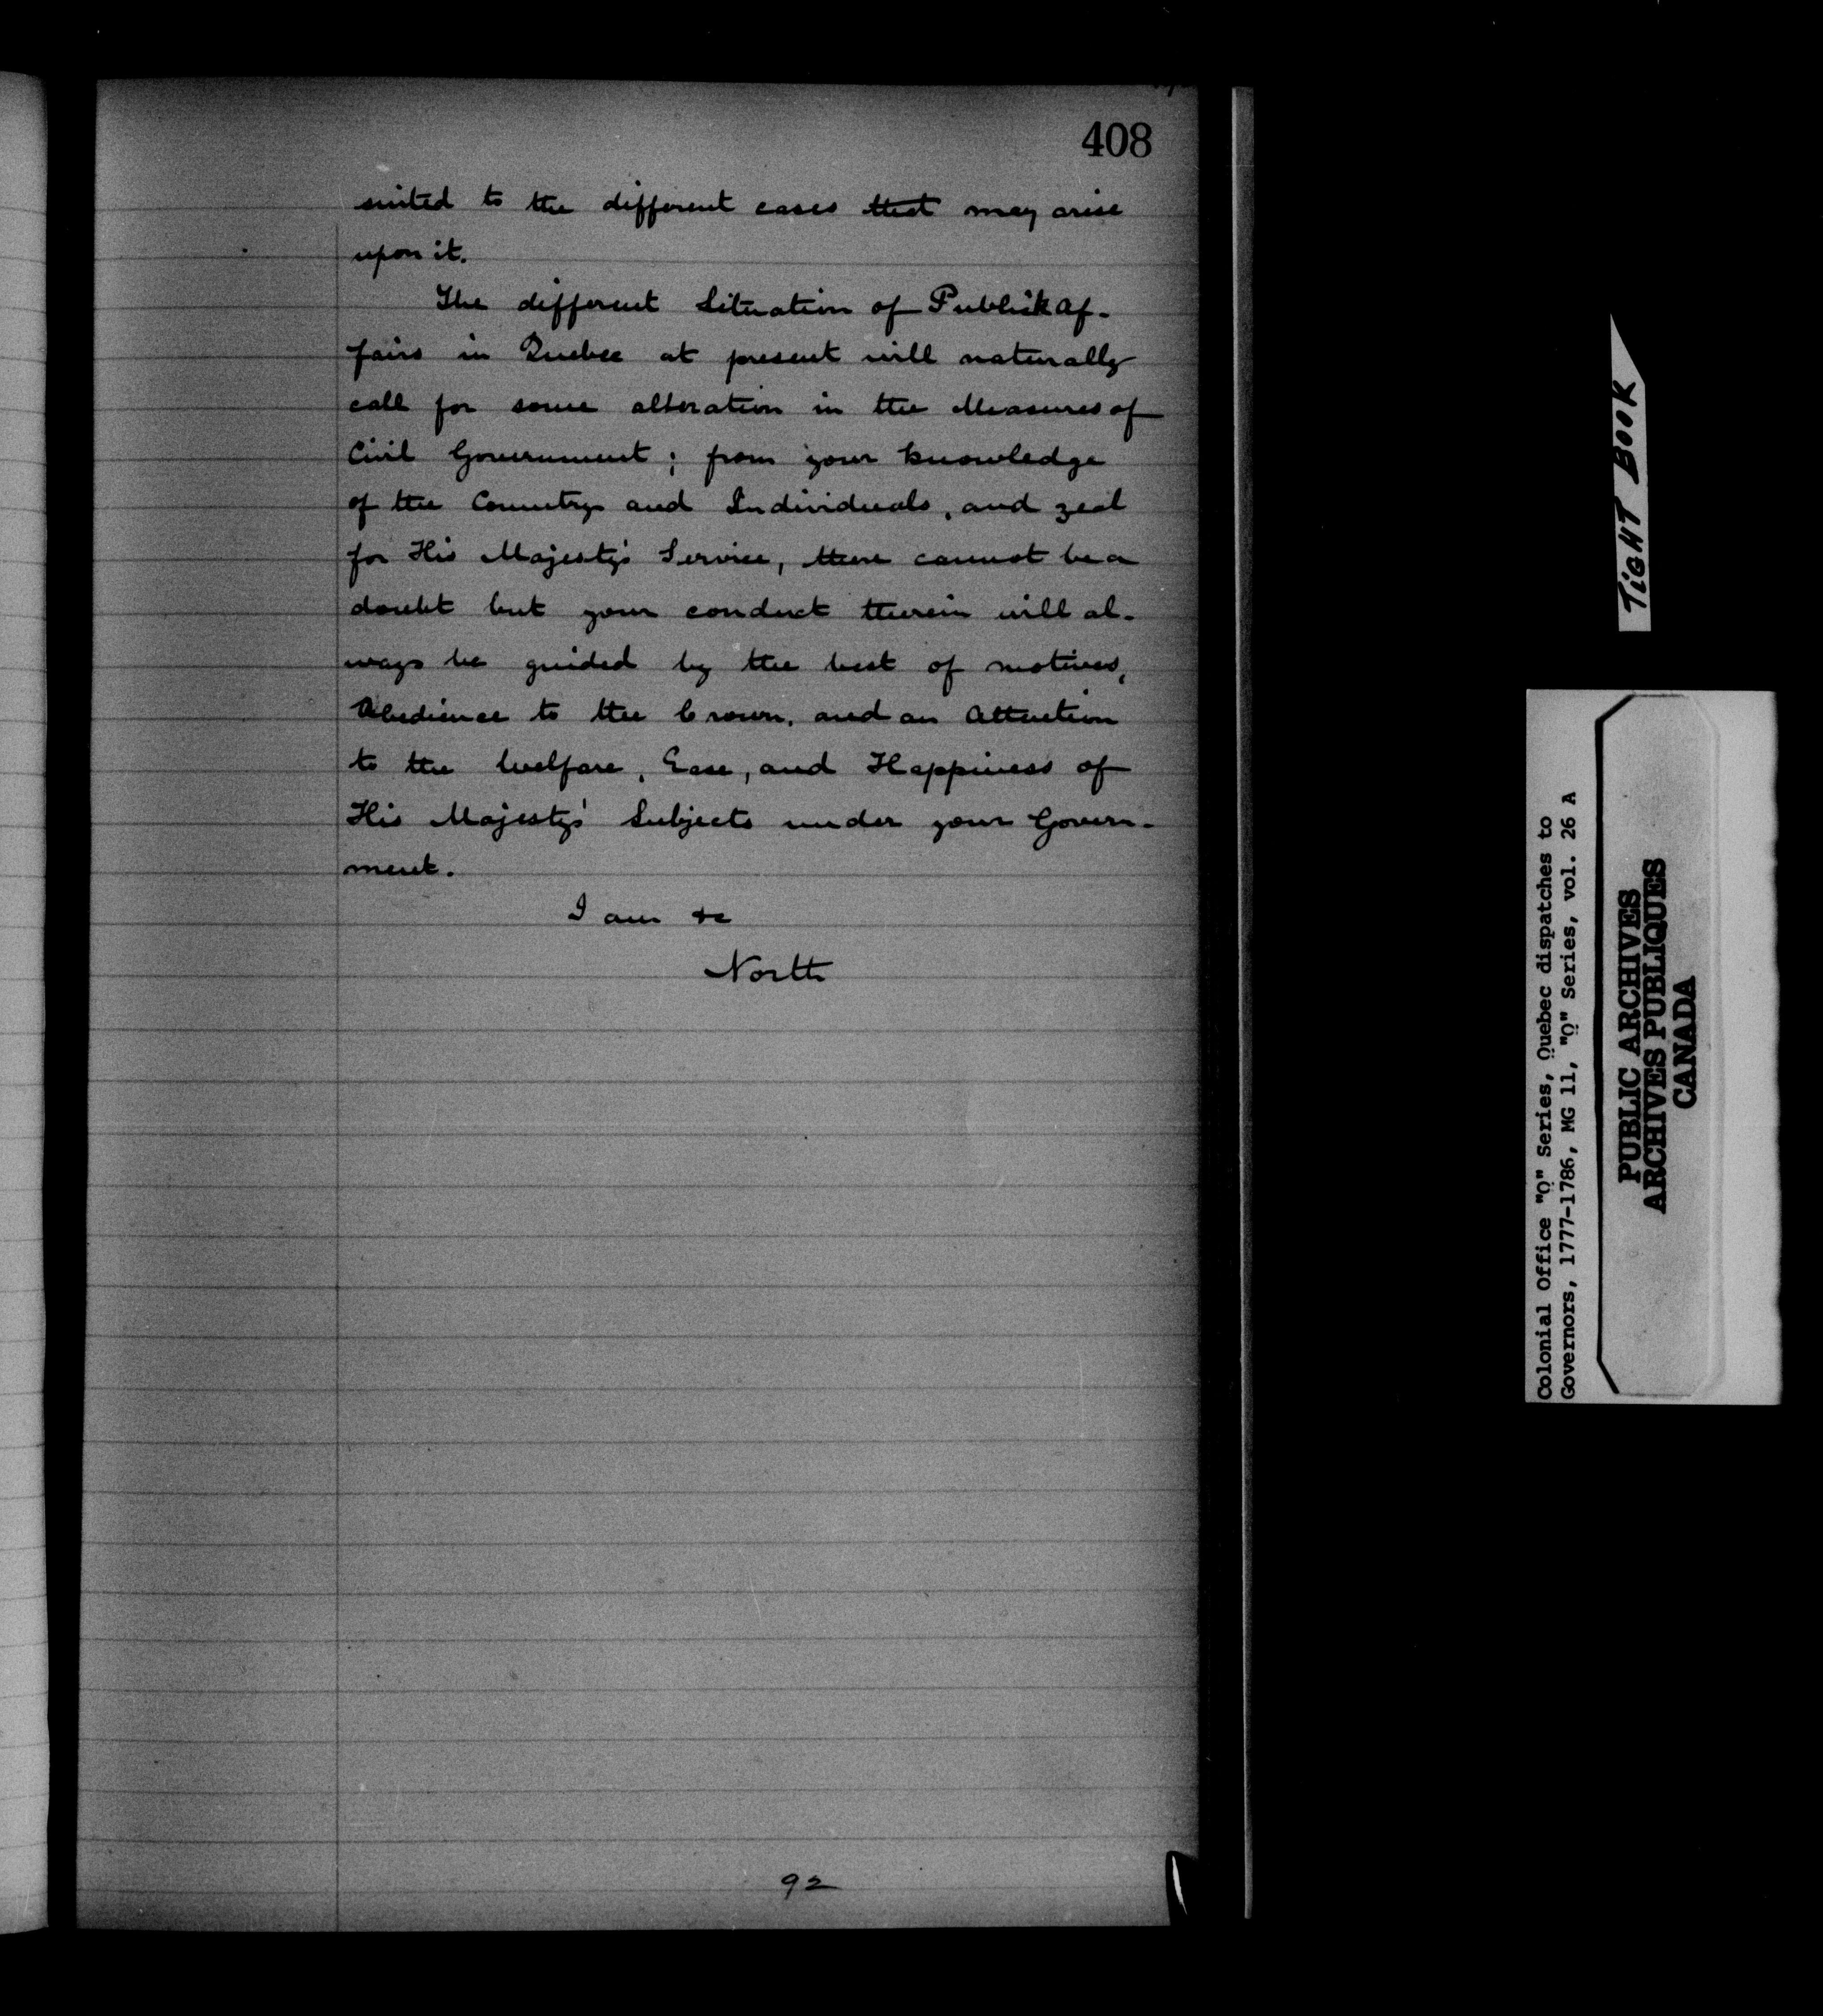 408
suited to the different cases that may arise
upon it.
The different Situation of Publick Af-
fairs in Quebec at present will naturally
call for some alteration in the Measures of
Civil Government; from your knowledge
of the Country and Individuals, and zeal
for His Majesty's Service, there cannot be a
doubt but your conduct therein will al-
ways be guided by the best of motives,
Obedience to the Crown, and an Attention
to the Welfare, Ease, and Happiness of
His Majesty's Subjects under your Govern-
ment.
I am &c
North
92
TIGHT BOOK
Colonial Office "Q" Series, Quebec dispatches to
Governors, 1777-1786, MG 11, "Q" Series, vol. 26 A
PUBLIC ARCHIVES
ARCHIVES PUBLIQUES
CANADA